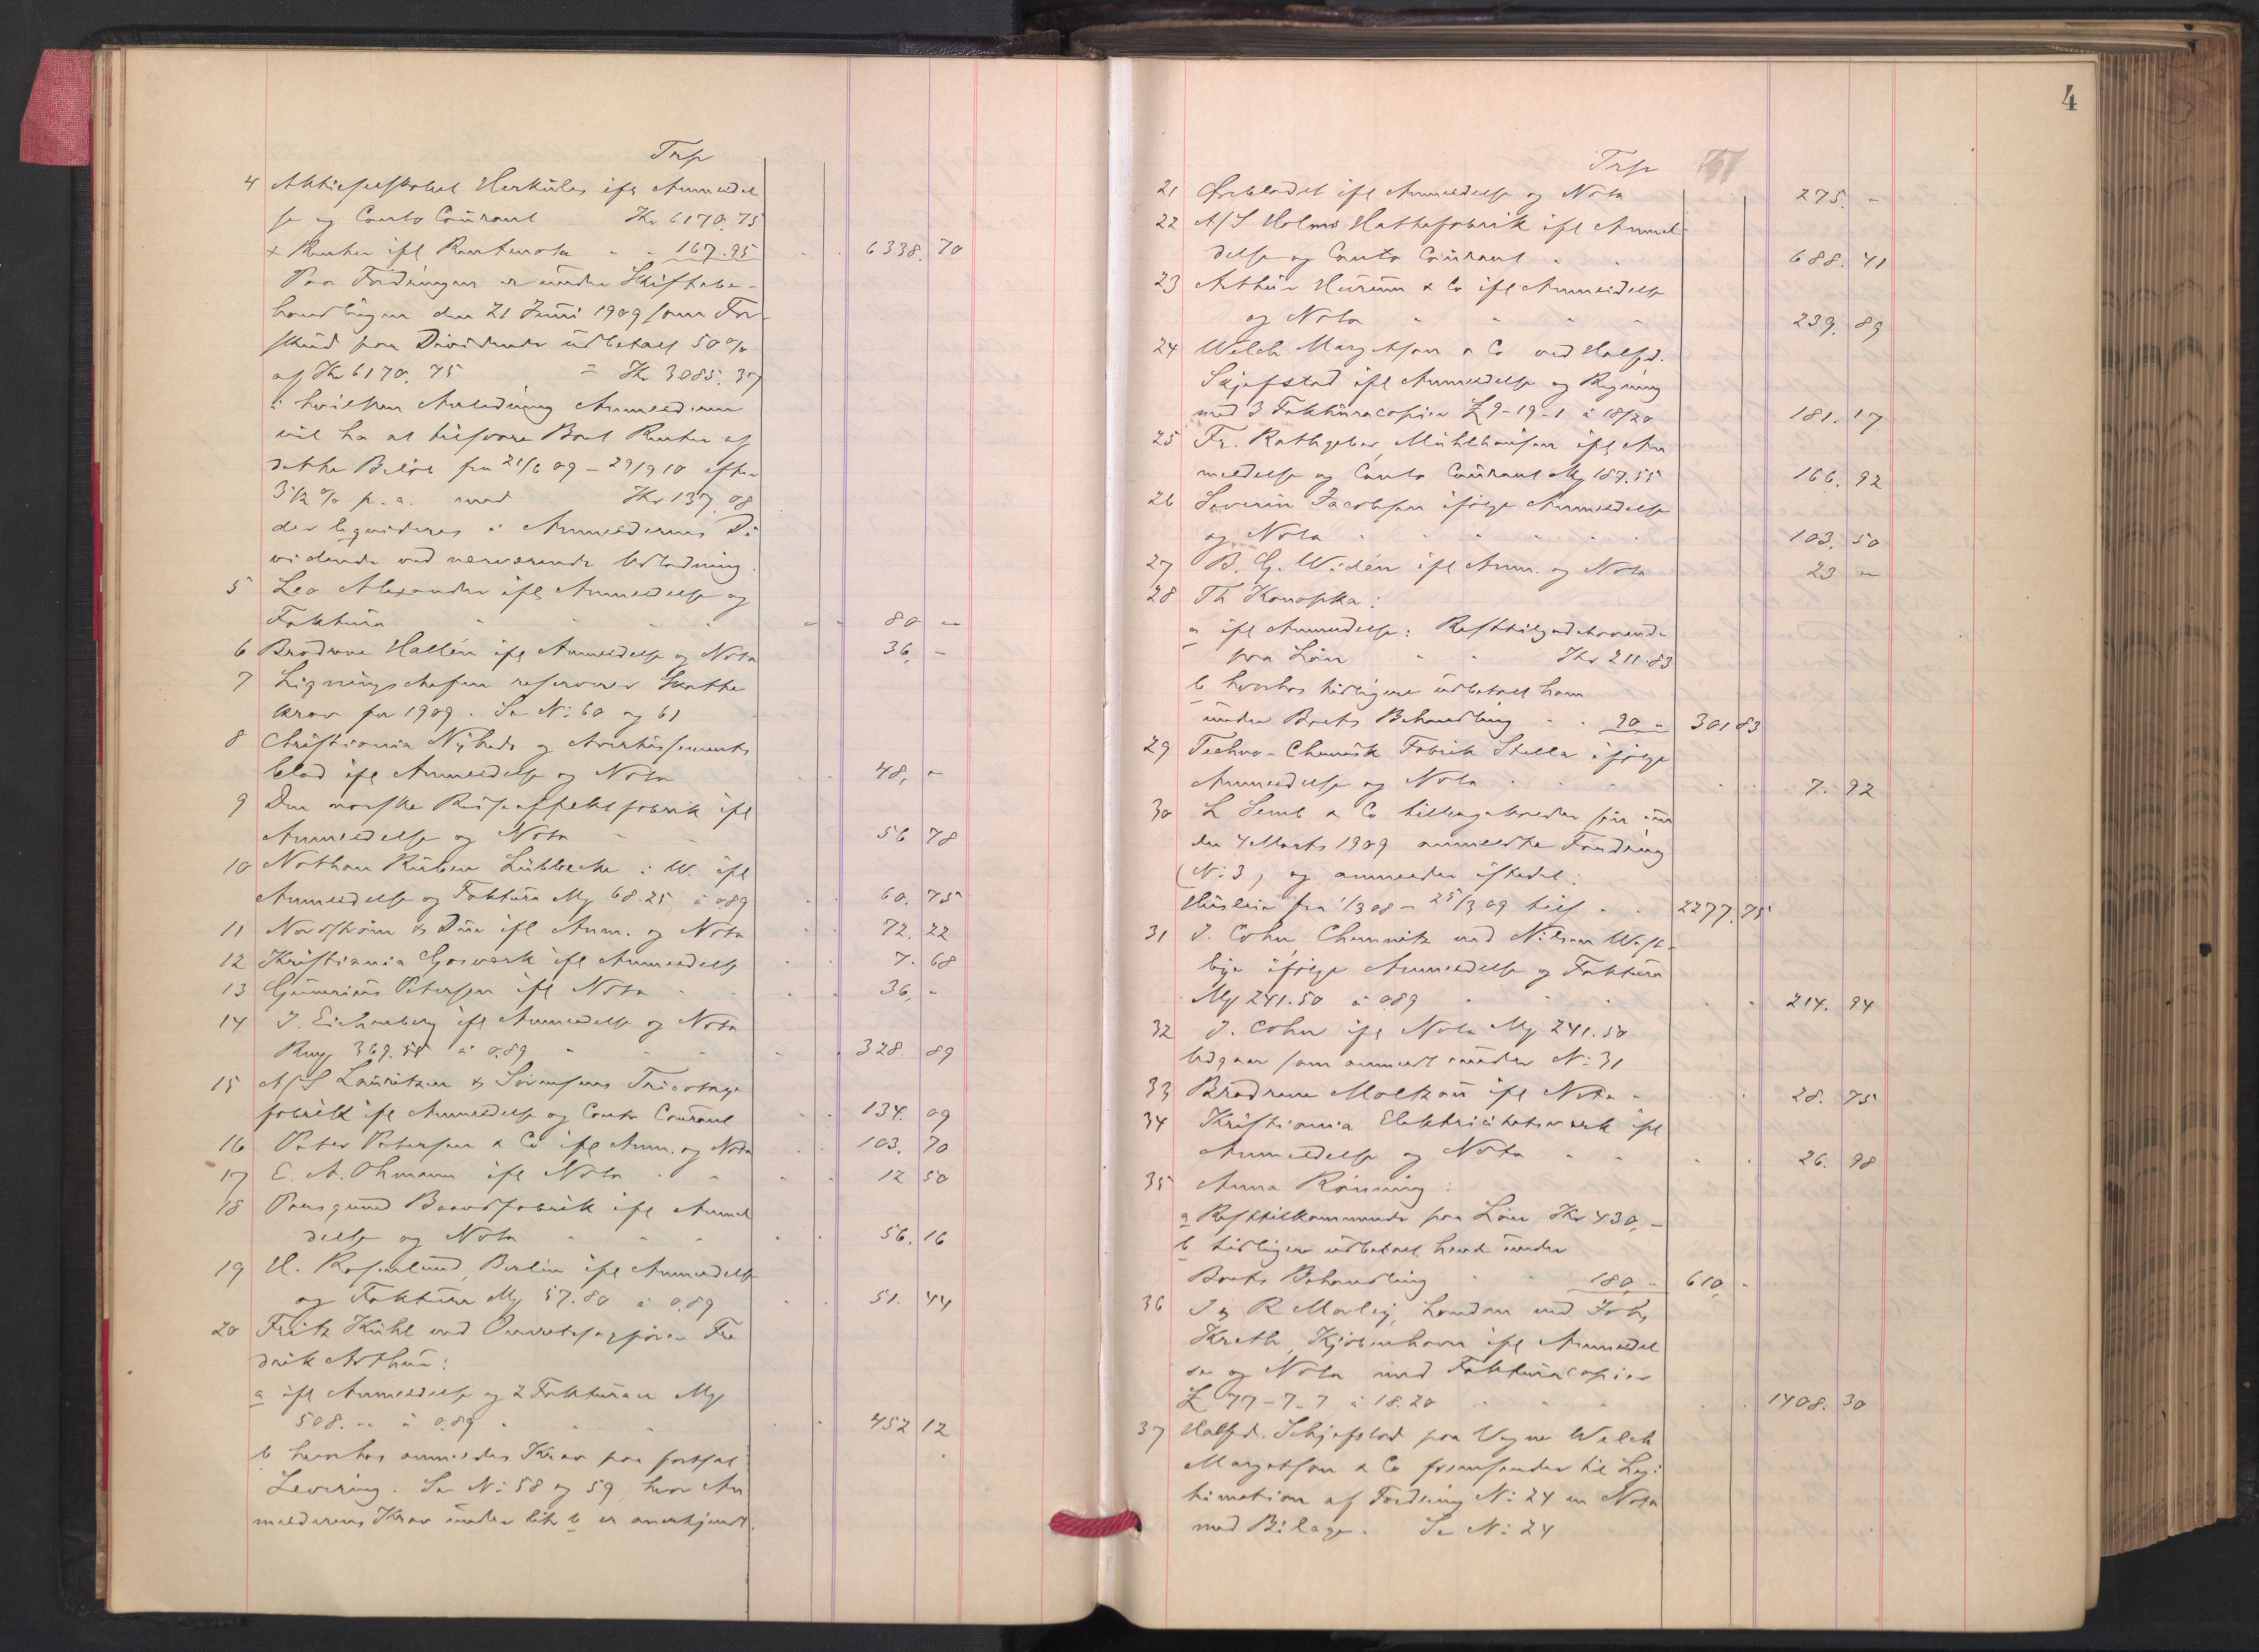 Trsp
4 Aktieselskabet Herkules ifl Anmeldel
se og Conto Courant Kr 6170.75
+ Renter ifl Rentenota - - 167.95 6338.70
Paa Fordringen er under Skiftebe-
handlingen den 21 Juni 1909 som For-
skud paa Dividende udbetalt 50%
af Kr 6170.75 = Kr 3085.37
i hvilken Anledning Anmelderen
vil ha at tilsvare Boet Renter af
dette Beløb fra 21/6 09 - 29/9 10 efter
3 1/2 % p. a. med Kr 137.08
der liqvideres i Anmelderens Di
vidende ved nærværende Udlodning.
5 Leo Alexander ifl Anmeldelse og
Faktura 80 -
6 Brødrene Hallén ifl Anmeldelse og Nota 36, -
7 Ligningschefen reserverer Skatte
krav for 1909. Se N: 60 og 61
8 Christiania Nyheds og Avertissements
blad ifl Anmeldelse og Nota 48, -
9 Den norske Reiseeffektfabrik ifl
Anmeldelse og Nota 56 78
10 Nathan Ruben Lübbecke i W. ifl
Anmeldelse og Faktura Mg 68.25 à 089 60.75
11 Nordstrøm & Due ifl Anm. og Nota 72.22
12 Kristiania Gasværk ifl Anmeldelse 7.68
13 Gunerius Petersen ifl Nota 36, -
14 J. Eichenberg ifl Anmeldelse og Nota
369.55 à 0.89 328.89
15 A/S Lauritzen & Sørensens Tricotage
fabrik ifl Anmeldelse og Conto Courant 134.09
16 Peter Petersen & Co ifl Anm. og Nota 103.70
17 E. A. Ohmann ifl Nota 12 50
18 Porsgrund Baandfabrik ifl Anmel
delse og Nota 56.16
19 H. Rosenlund, Berlin ifl Anmeldelse
og Faktura Mg 57.80 à 0.89 51.44
20 Fritz Kühl ved Overretssagfører Fre
drik Arthur:
a ifl Anmeldelse og 2 Fakturaer Mg
508. - à 0.89 452 12
b hvorhos anmeldes Krav paa fortsat
Levering. Se N: 58 og 59, hvor An
melderens Krav under litr b er anerkjendt.
4
Trsp
21 Ørebladet ifl Anmeldelse og Nota 275. -
22 A/S Holms Hattefabrik ifl Anmel-
delse og Conto Courant 688.41
23 Arthur Hurum & Co ifl Anmeldelse
og Nota 239.89
24 Welch Margetson & Co ved Halfd.
Skjefstad ifl Anmeldelse og Regning
med 3 Fakturacopier £ 9-19-1 à 18/20 181.17
25 Fr. Rathgeber, Mühlhausen ifl An
meldelse og Conto Courant Mg 187.55 166.92
26 Severin Jacobsen ifølge Anmeldelse
og Nota 103.50
27 B. G. Widén ifl Anm. og Nota 23 -
28 Th Konopka:
a ifl Anmeldelse: Resttilgodehavende
paa Løn Kr 211.83
b hvorhos tidligere udbetalt ham
under Boets Behandling - - 90 - 301 83
29 Techno-Chemisk Fabrik Stella ifølge
Anmeldelse og Nota 7.92
30 L Semb & Co tilbagekalder sin
den 4 Marts 1909 anmeldte Fordring
(N: 3) og anmelder istedet:
Husleie fra 1/3 08 - 25/3 09 tils. 2277.75
31 J. Cohn, Chemnitz ved Nilsen West-
bye ifølge Anmeldelse og Faktura
Mg 241.50 à 089 214.94
32 J. Cohn ifl Nota Mg 241.50
Udgaar som anmeldt under N: 31
33 Brødrene Moltzau ifl Nota 28.75
34 Kristiania Elektricitetsværk ifl
Anmeldelse og Nota 26.98
35 Anna Rønning:
a Resttilkommende paa Løn Kr 430, -
b tidligere udbetalt hende under
Boets Behandling 180, - 610, -
36 J & R Morley, London ved Joh.
Kreth, Kjøbenhavn ifl Anmeldel
se og Nota med Fakturacopier
£ 77-7-7 à 18.20 1408.30
37 Halfd. Schjefstad paa Vegne Welch
Margetson & Co fremsender til Legi
timation af Fordring N: 24 en Nota
med Bilage. Se N: 24